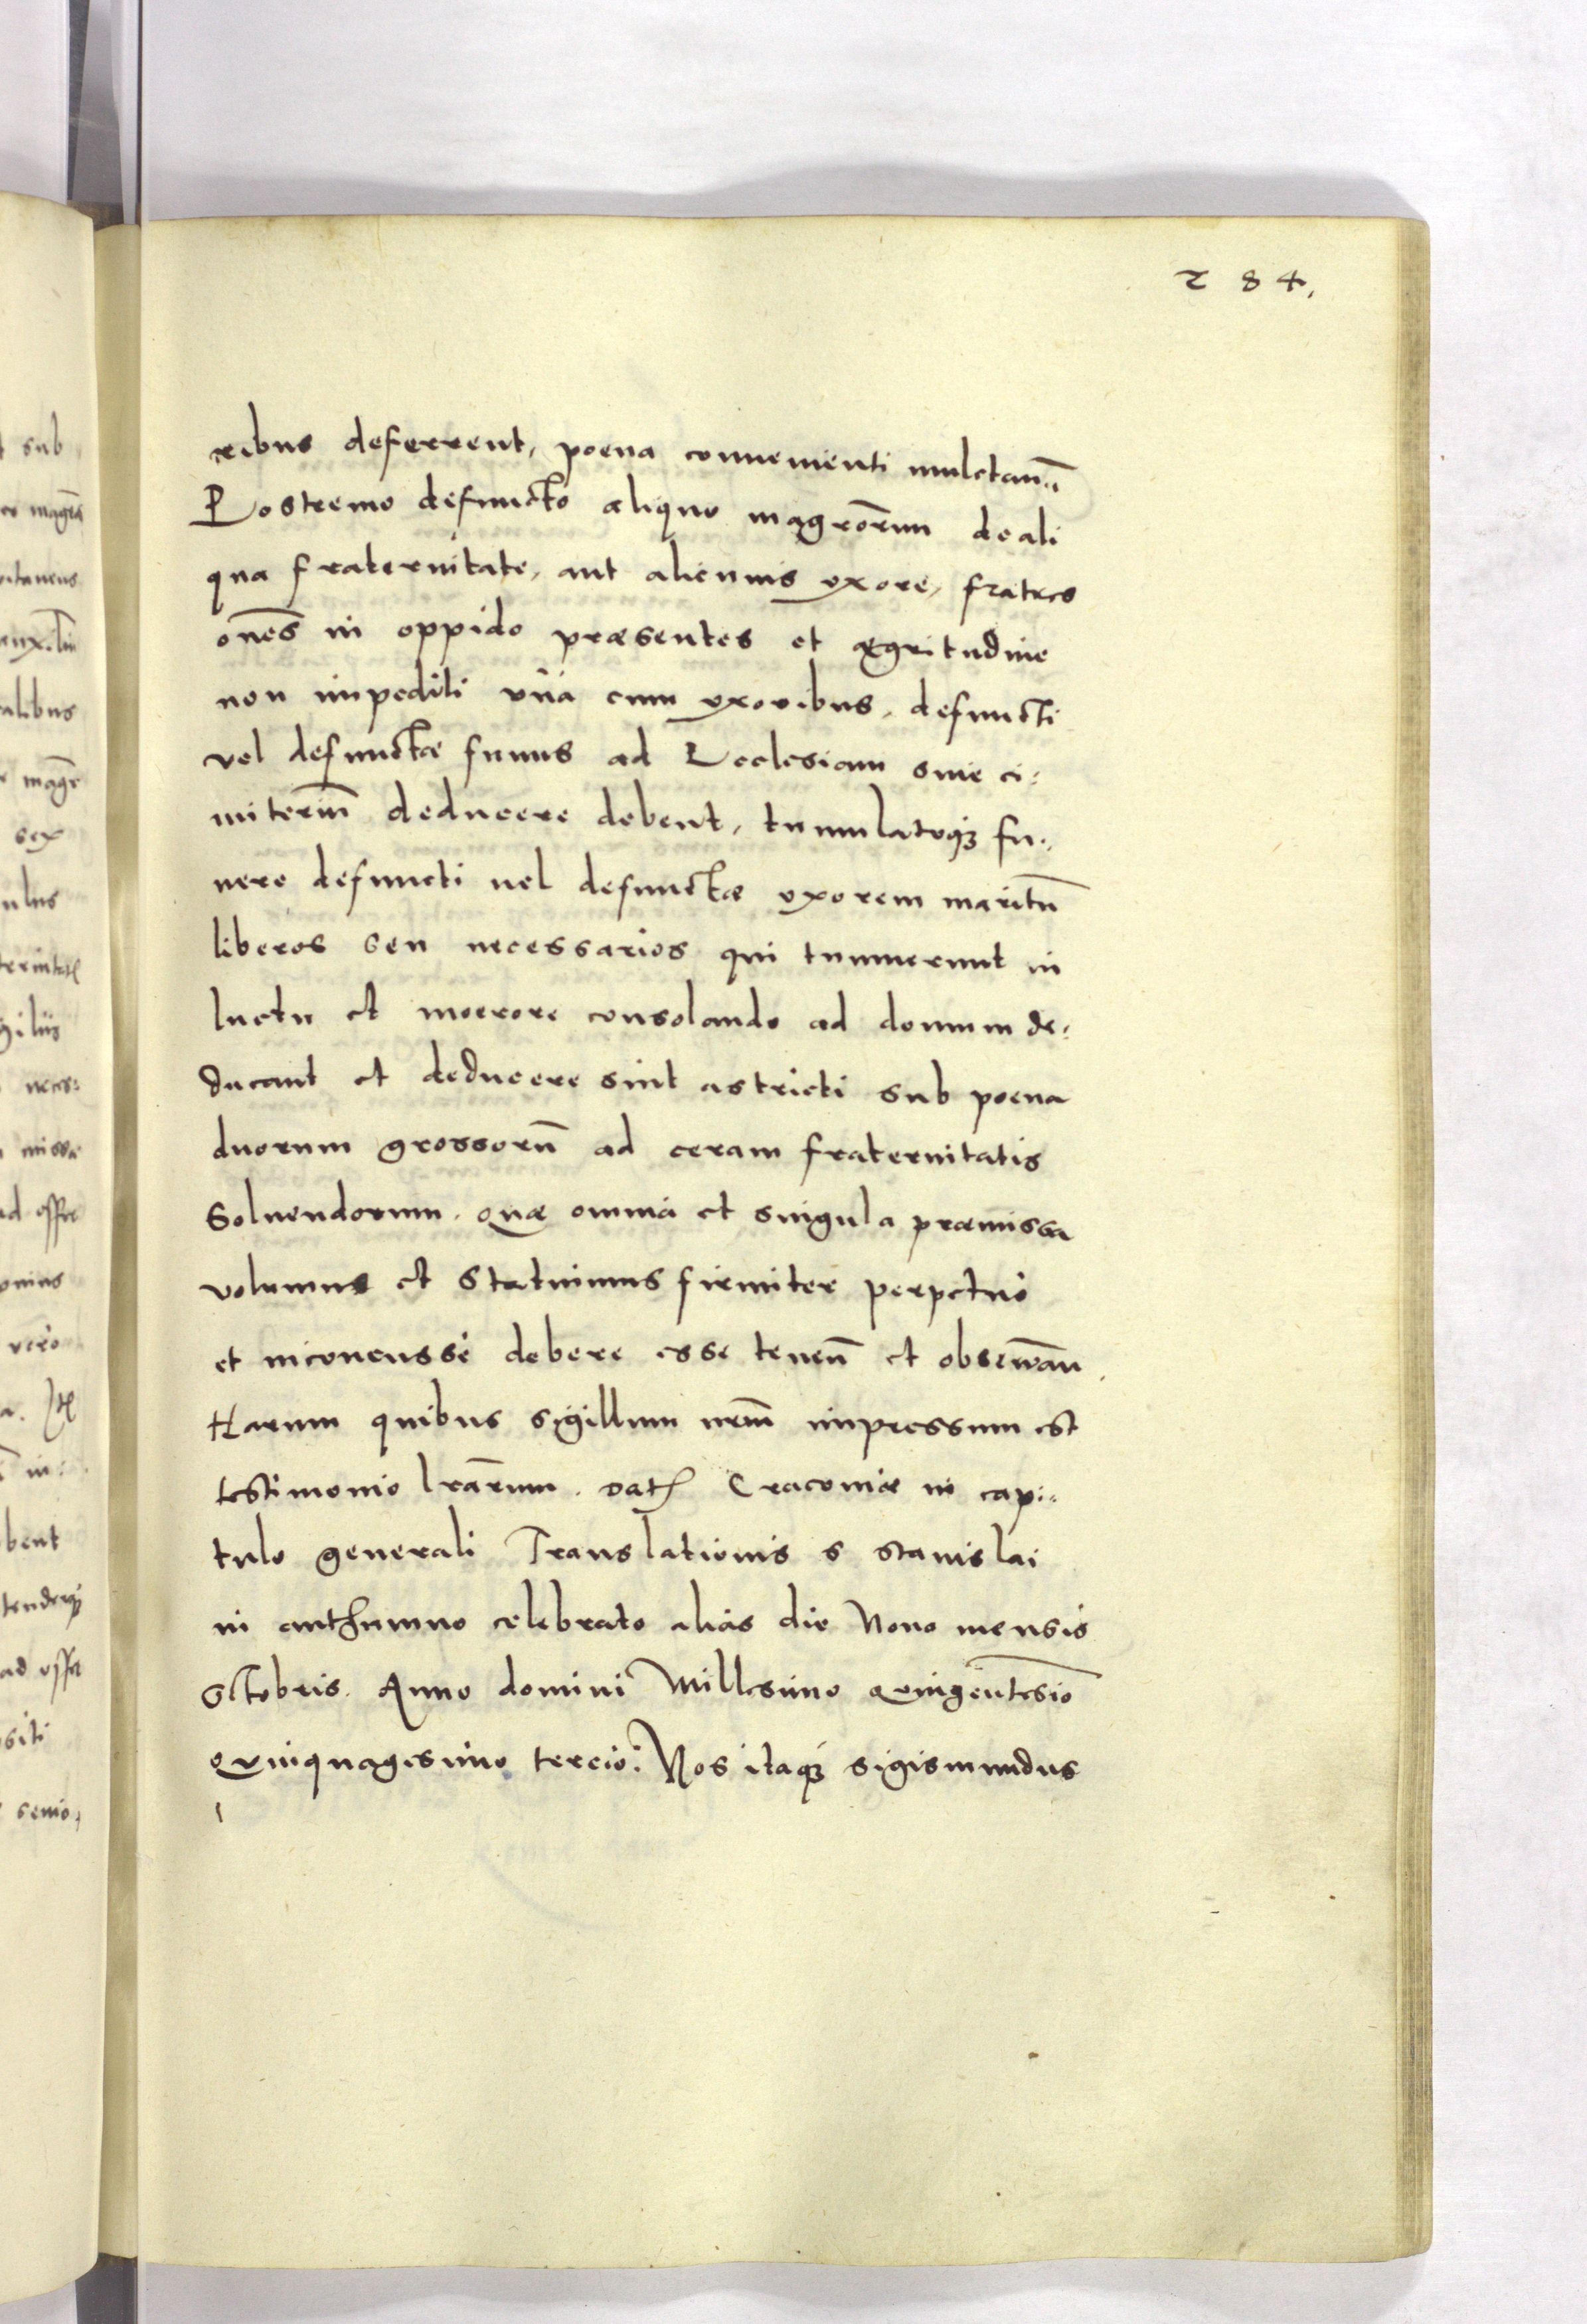 284.
ribus deferrent, poena conuenienti mulctan̄
Postremo defuncto aliquo magrōrum de ali
qua fraternitate, aut alicuius vxore, fratres
om̄es in oppido praesentes et aegritudine
non impediti vná cum vxoribus, defuncti
vel defunctae funus ad Ecclesiam siue ci:
miteriū deducere debent, tumulatoq̨ fu:
nere defuncti uel defunctae vxorem maritū
liberos seu necessarios qui tumuerunt in
luctu et moerore consolando ad domum de:
ducant et deducere sint astricti sub poena
duorum grossorū ad ceram fraternitatis
Soluendorum. Quae omnia et singula praemissa
volumus et Statuimus firmiter perpetuò
et inconcussè debere esse tenen̄ et obseruān.
Harum quibus sigillum nr̄m impressum est
testimonio lrārum. Dat Cracouiae in capi:
tulo generali Translationis S Stanislai
in authumno celebrato aliàs die Nono mensis
Octobris. Anno domini Millesimo Quingentesīo
Quinquagesimo tercio. Nos itaq̨ Sigismundus
sub
magrā
sex
vero
bent
senio: